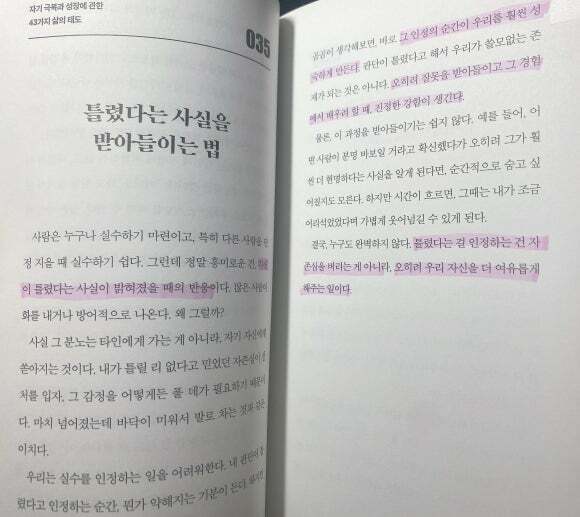 자기 극복과 성장에 관한
43가지 삶의 태도
035
틀렸다는 사실을
받아들이는 법
사람은 누구나 실수하기 마련이고, 특히 다른 사람을 판
정 지을 때 실수하기 쉽다. 그런데 정말 흥미로운 건,
이 틀렸다는 사실이 밝혀졌을 때의 반응이다. 많은 사람이
화를 내거나 방어적으로 나온다. 왜 그럴까?
사실 그 분노는 타인에게 가는 게 아니라, 자기 자신에게
쏟아지는 것이다. 내가 틀릴 리 없다고 믿었던 자존심이 상
처를 입자, 그 감정을 어떻게든 풀 데가 필요하기 때문이
다. 마치 넘어졌는데 바닥이 미워서 발로 차는 것과 같은
이치다.
우리는 실수를 인정하는 일을 어려워한다. 내 판단이 틀
렸다고 인정하는 순간, 뭔가 약해지는 기분이 든다. 하지만
곰곰이 생각해보면, 바로 그 인정의 순간이 우리를 훨씬 성
숙하게 만든다. 판단이 틀렸다고 해서 우리가 쓸모없는 존
재가 되는 것은 아니다. 오히려 잘못을 받아들이고 그 경험
에서 배우려 할 때, 진정한 강함이 생긴다.
물론, 이 과정을 받아들이기는 쉽지 않다. 예를 들어, 어
떤 사람이 분명 바보일 거라고 확신했다가 오히려 그가 훨
씬 더 현명하다는 사실을 알게 된다면, 순간적으로 숨고 싶
어질지도 모른다. 하지만 시간이 흐르면, 그때는 내가 조금
어리석었었다며 가볍게 웃어넘길 수 있게 된다.
결국, 누구도 완벽하지 않다. 틀렸다는 걸 인정하는 건 자
존심을 버리는 게 아니라, 오히려 우리 자신을 더 여유롭게
해주는 일이다.